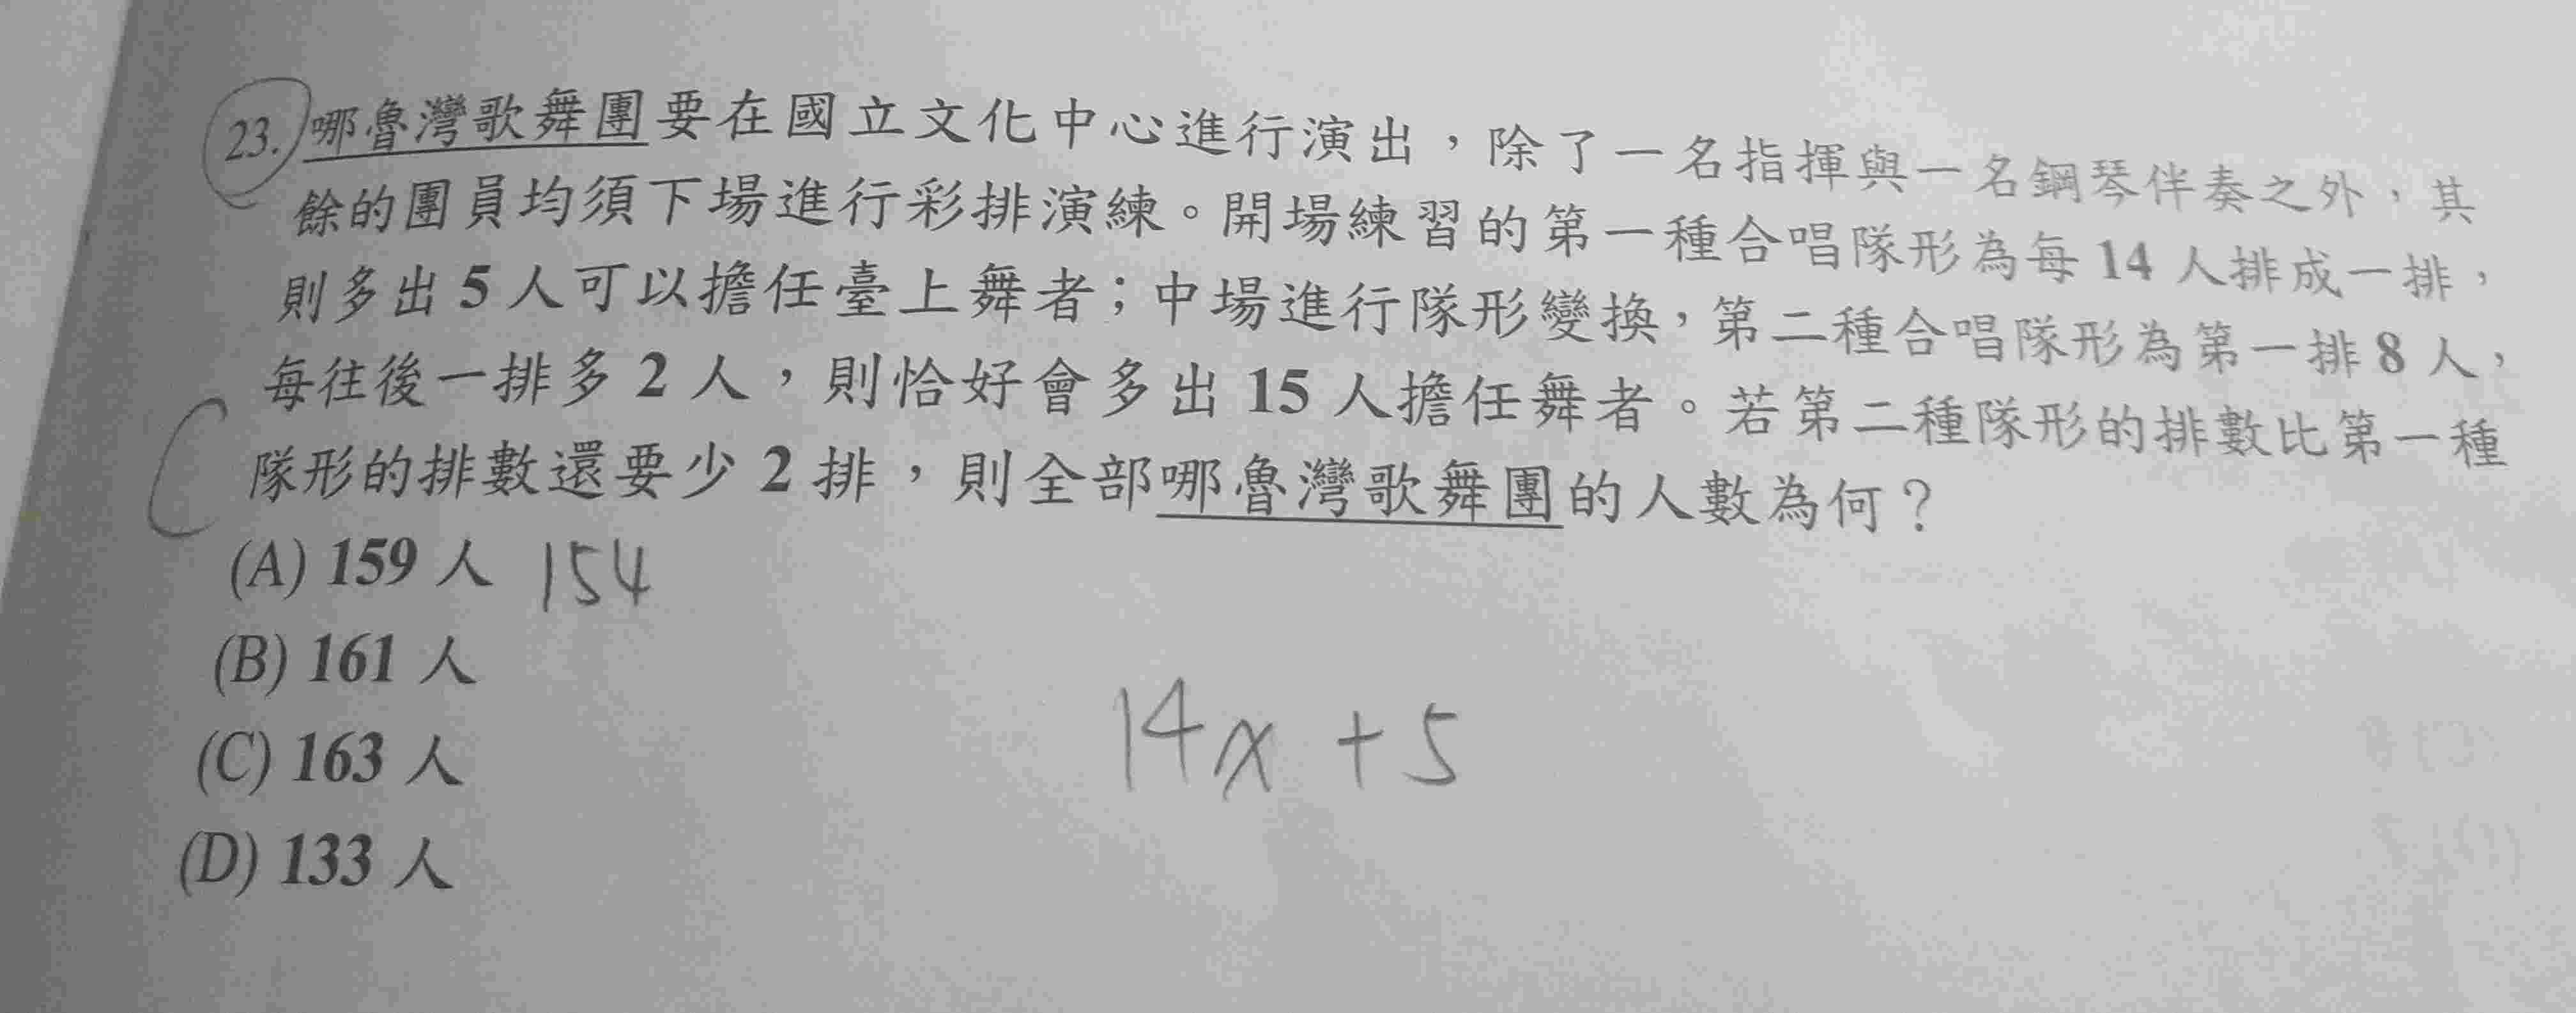 23. 哪魯灣歌舞團要在國立文化中心進行演出，除了一名指揮與一名鋼琴伴奏之外，其
餘的團員均須下場進行彩排演練。開場練習的第一種合唱隊形為每14人排成一排，
則多出5人可以擔任臺上舞者；中場進行隊形變換，第二種合唱隊形為第一排8人，
每往後一排多2人，則恰好會多出15人擔任舞者。若第二種隊形的排數比第一種
隊形的排數還要少2排，則全部哪魯灣歌舞團的人數為何？
C
(A) 159人 154
(B) 161人
(C) 163人
14x + 5
(D) 133人